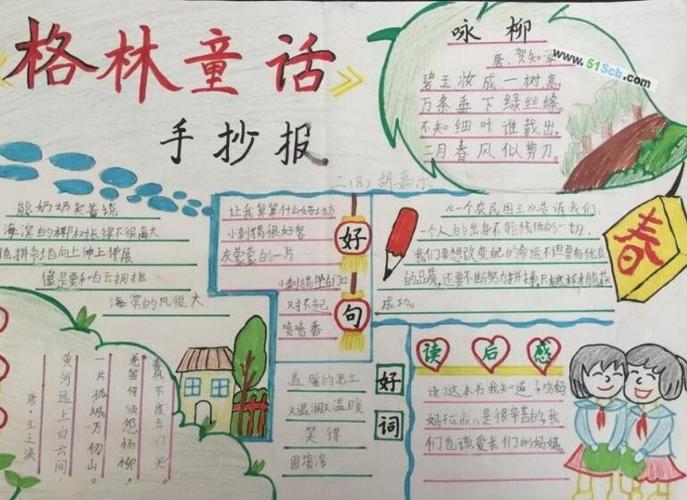 格林童话
手抄报
二(8)
咏柳
唐、贺知章
www.51Scb.com
碧玉妆成一树高,
万条垂下绿丝绦。
不知细叶谁裁出,
二月春风似剪刀。
熊奶奶笑着说
海滨的树长得不很高大
拼命地向上伸上伸展
像是要和白云拥抱
海滨的风很大
让我算算什么好
小刺猬很好客
灰蒙蒙的一片
小刺猬
对不起
喷喷香
好句
《一个农民国王》告诉我们,
一个人的出身不能代他的一切,
我们要想改变的命运不但要有优良
的品质,还要不断努力拼搏只有这样才能
成功。
春
唐·王之涣
黄河远上白云间,
一片孤城万仞山。
羌笛何须怨杨柳,
春风不度玉门关。
温暖的黑土
又湿润又温暖
笑得
圆滚滚
好词
读后感
读这本书我知道了,妈
妈是很辛苦的,我
们也该爱我们的妈妈。